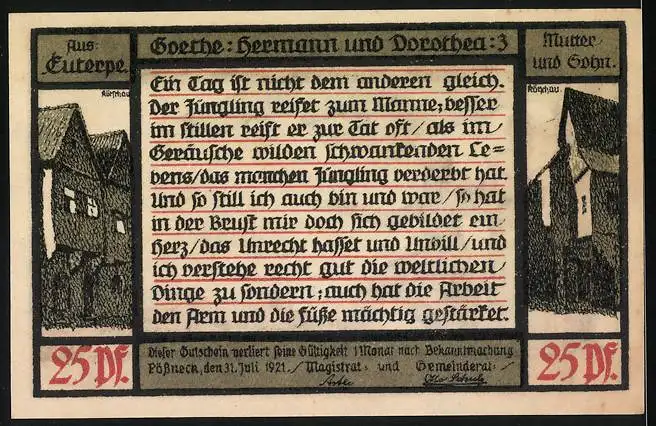 Aus:
Euterpe.
Goethe: Hermann und Dorothea: 3
Mutter
und Sohn.
Ein Tag ist nicht dem anderen gleich.
Der Jüngling reifet zum Manne; besser
im stillen reift er zur Tat oft/als im
Geräusche wilden schwankenden Le=
bens/das manchen Jüngling verderbt hat.
Und so still ich auch bin und war/so hat
in der Brust mir doch sich gebildet ein
Herz/das Unrecht hasset und Unbill/und
ich verstehe recht gut die weltlichen
Dinge zu sondern; auch hat die Arbeit
den Arm und die Füße mächtig gestärket.
25 Pf.
Dieser Gutschein verliert seine Gültigkeit 1 Monat nach Bekanntmachung
Pößneck, den 31. Juli 1921. / Magistrat- und Gemeinderat-/
25 Pf.